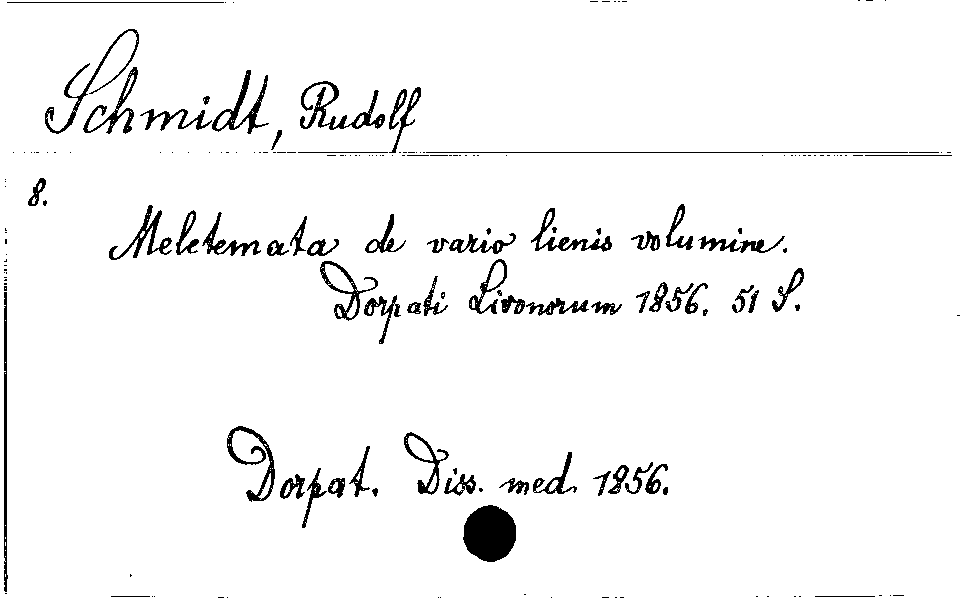 Schmidt, Rudolf
8.
Meletemata de vario lienis volumine.
Dorpati Livonorum 1856. 51 S.
Dorpat. Diss. med. 1856.